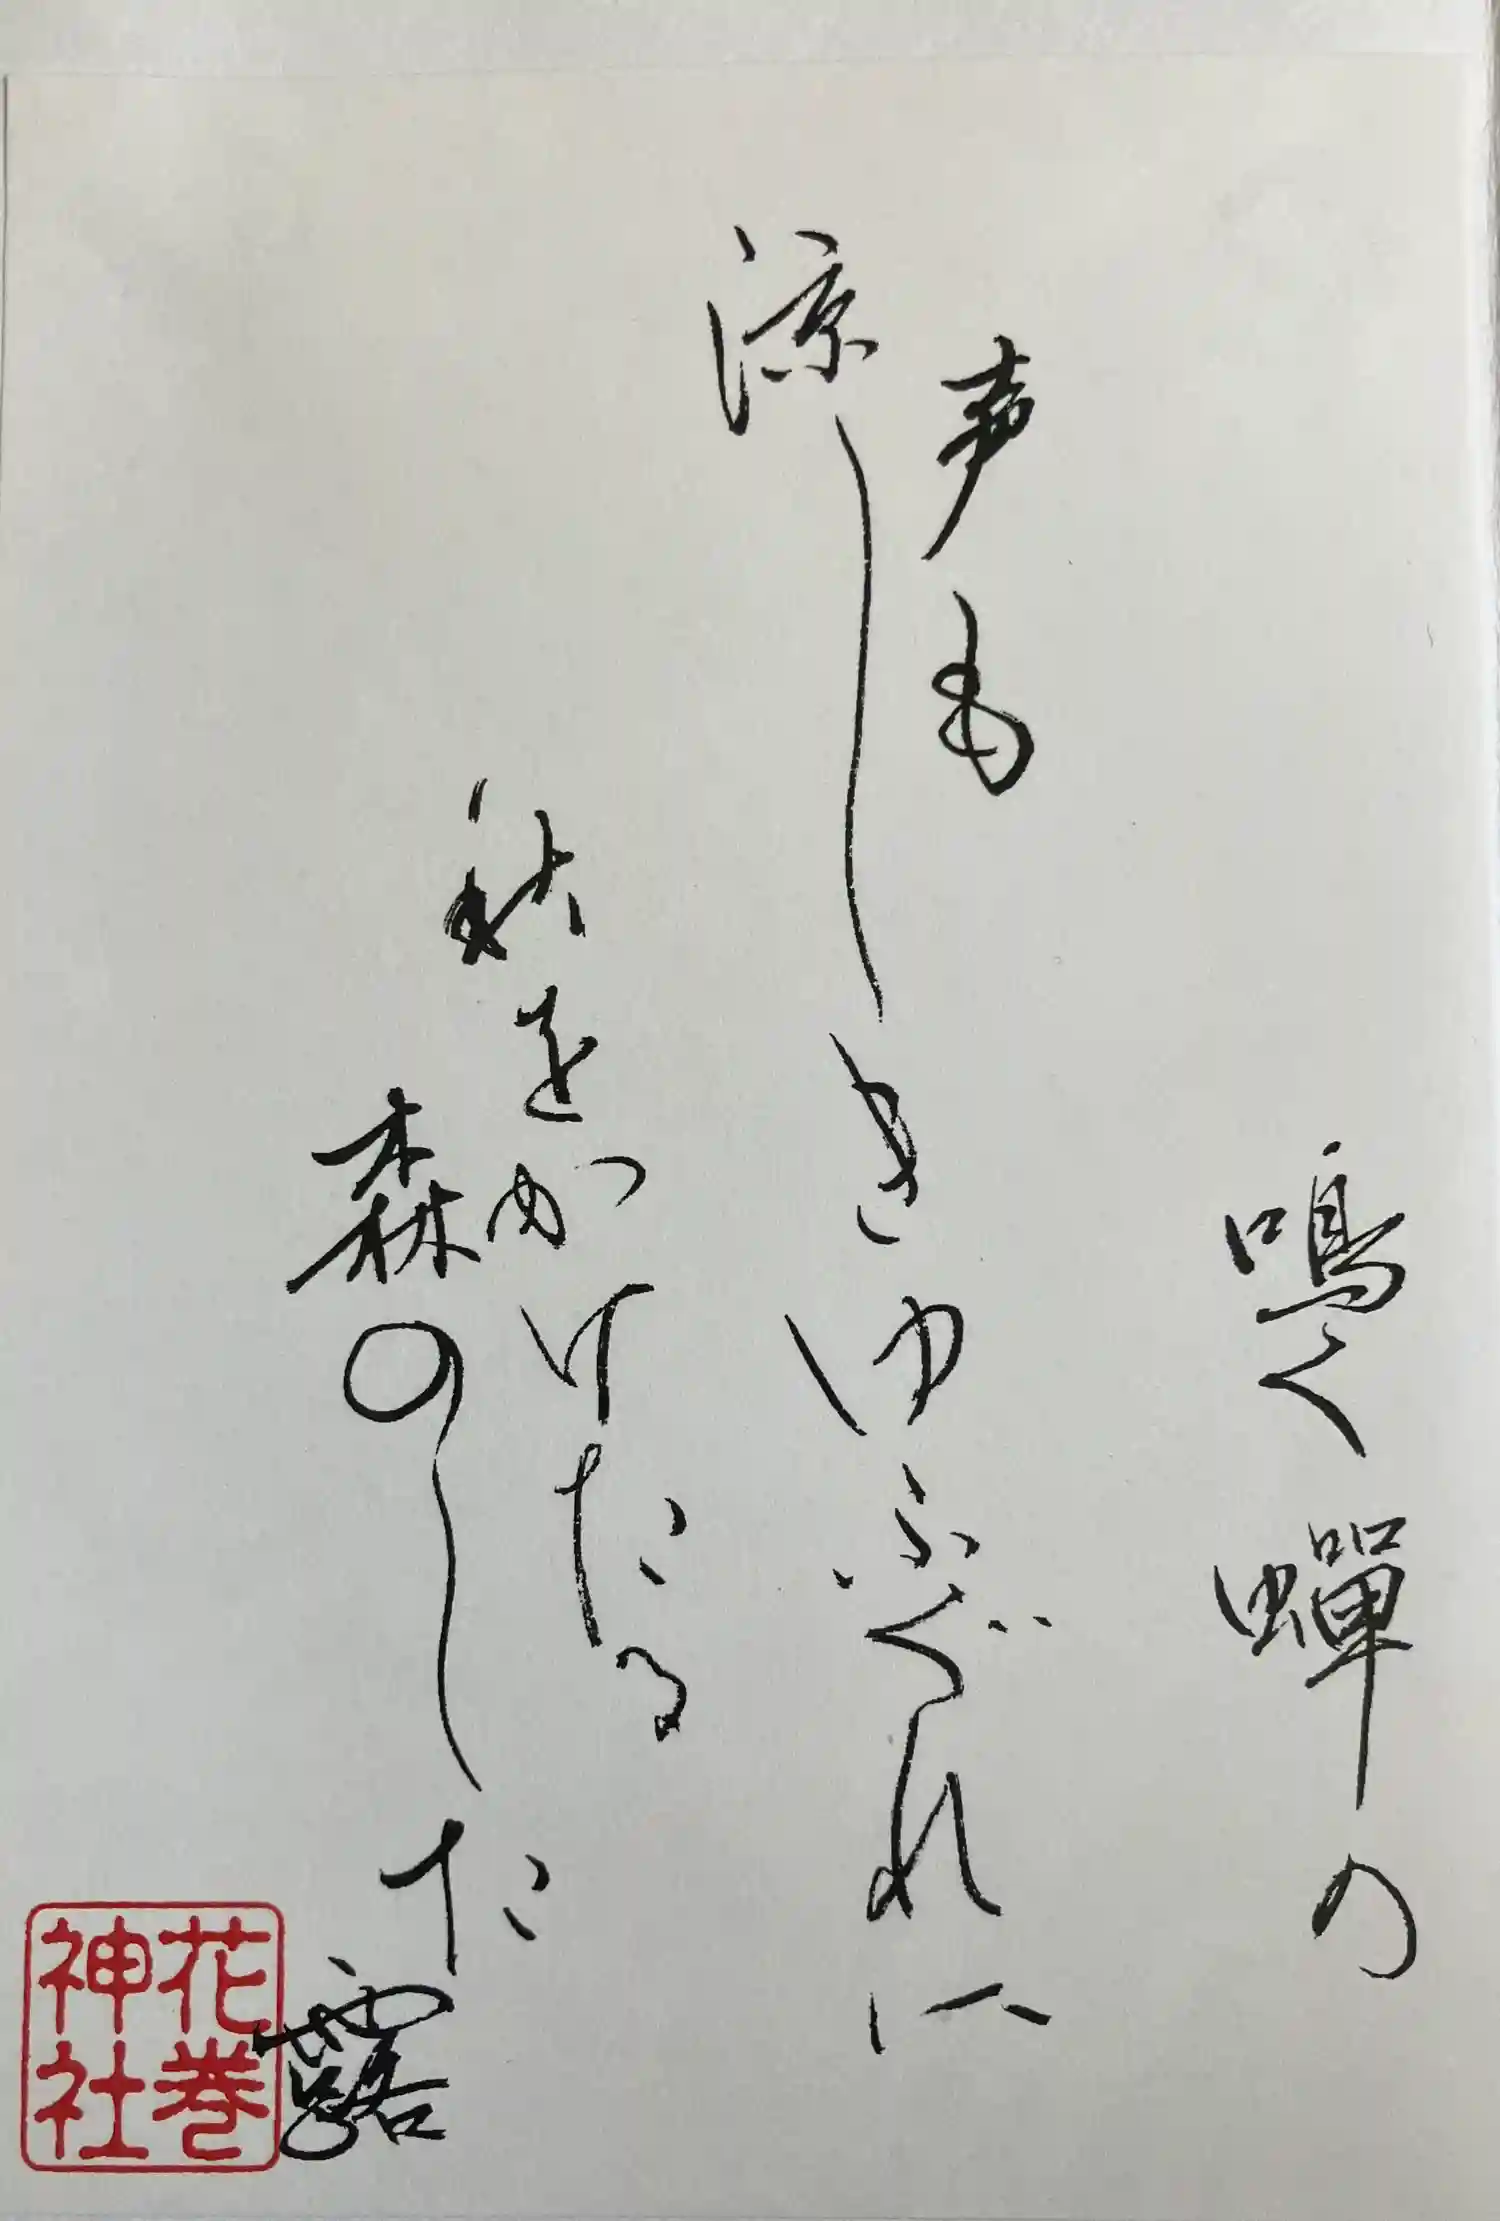 鳴く蝉の
声も
涼しきゆふぐれに
秋をかけたる
森のした露
花巻
神社